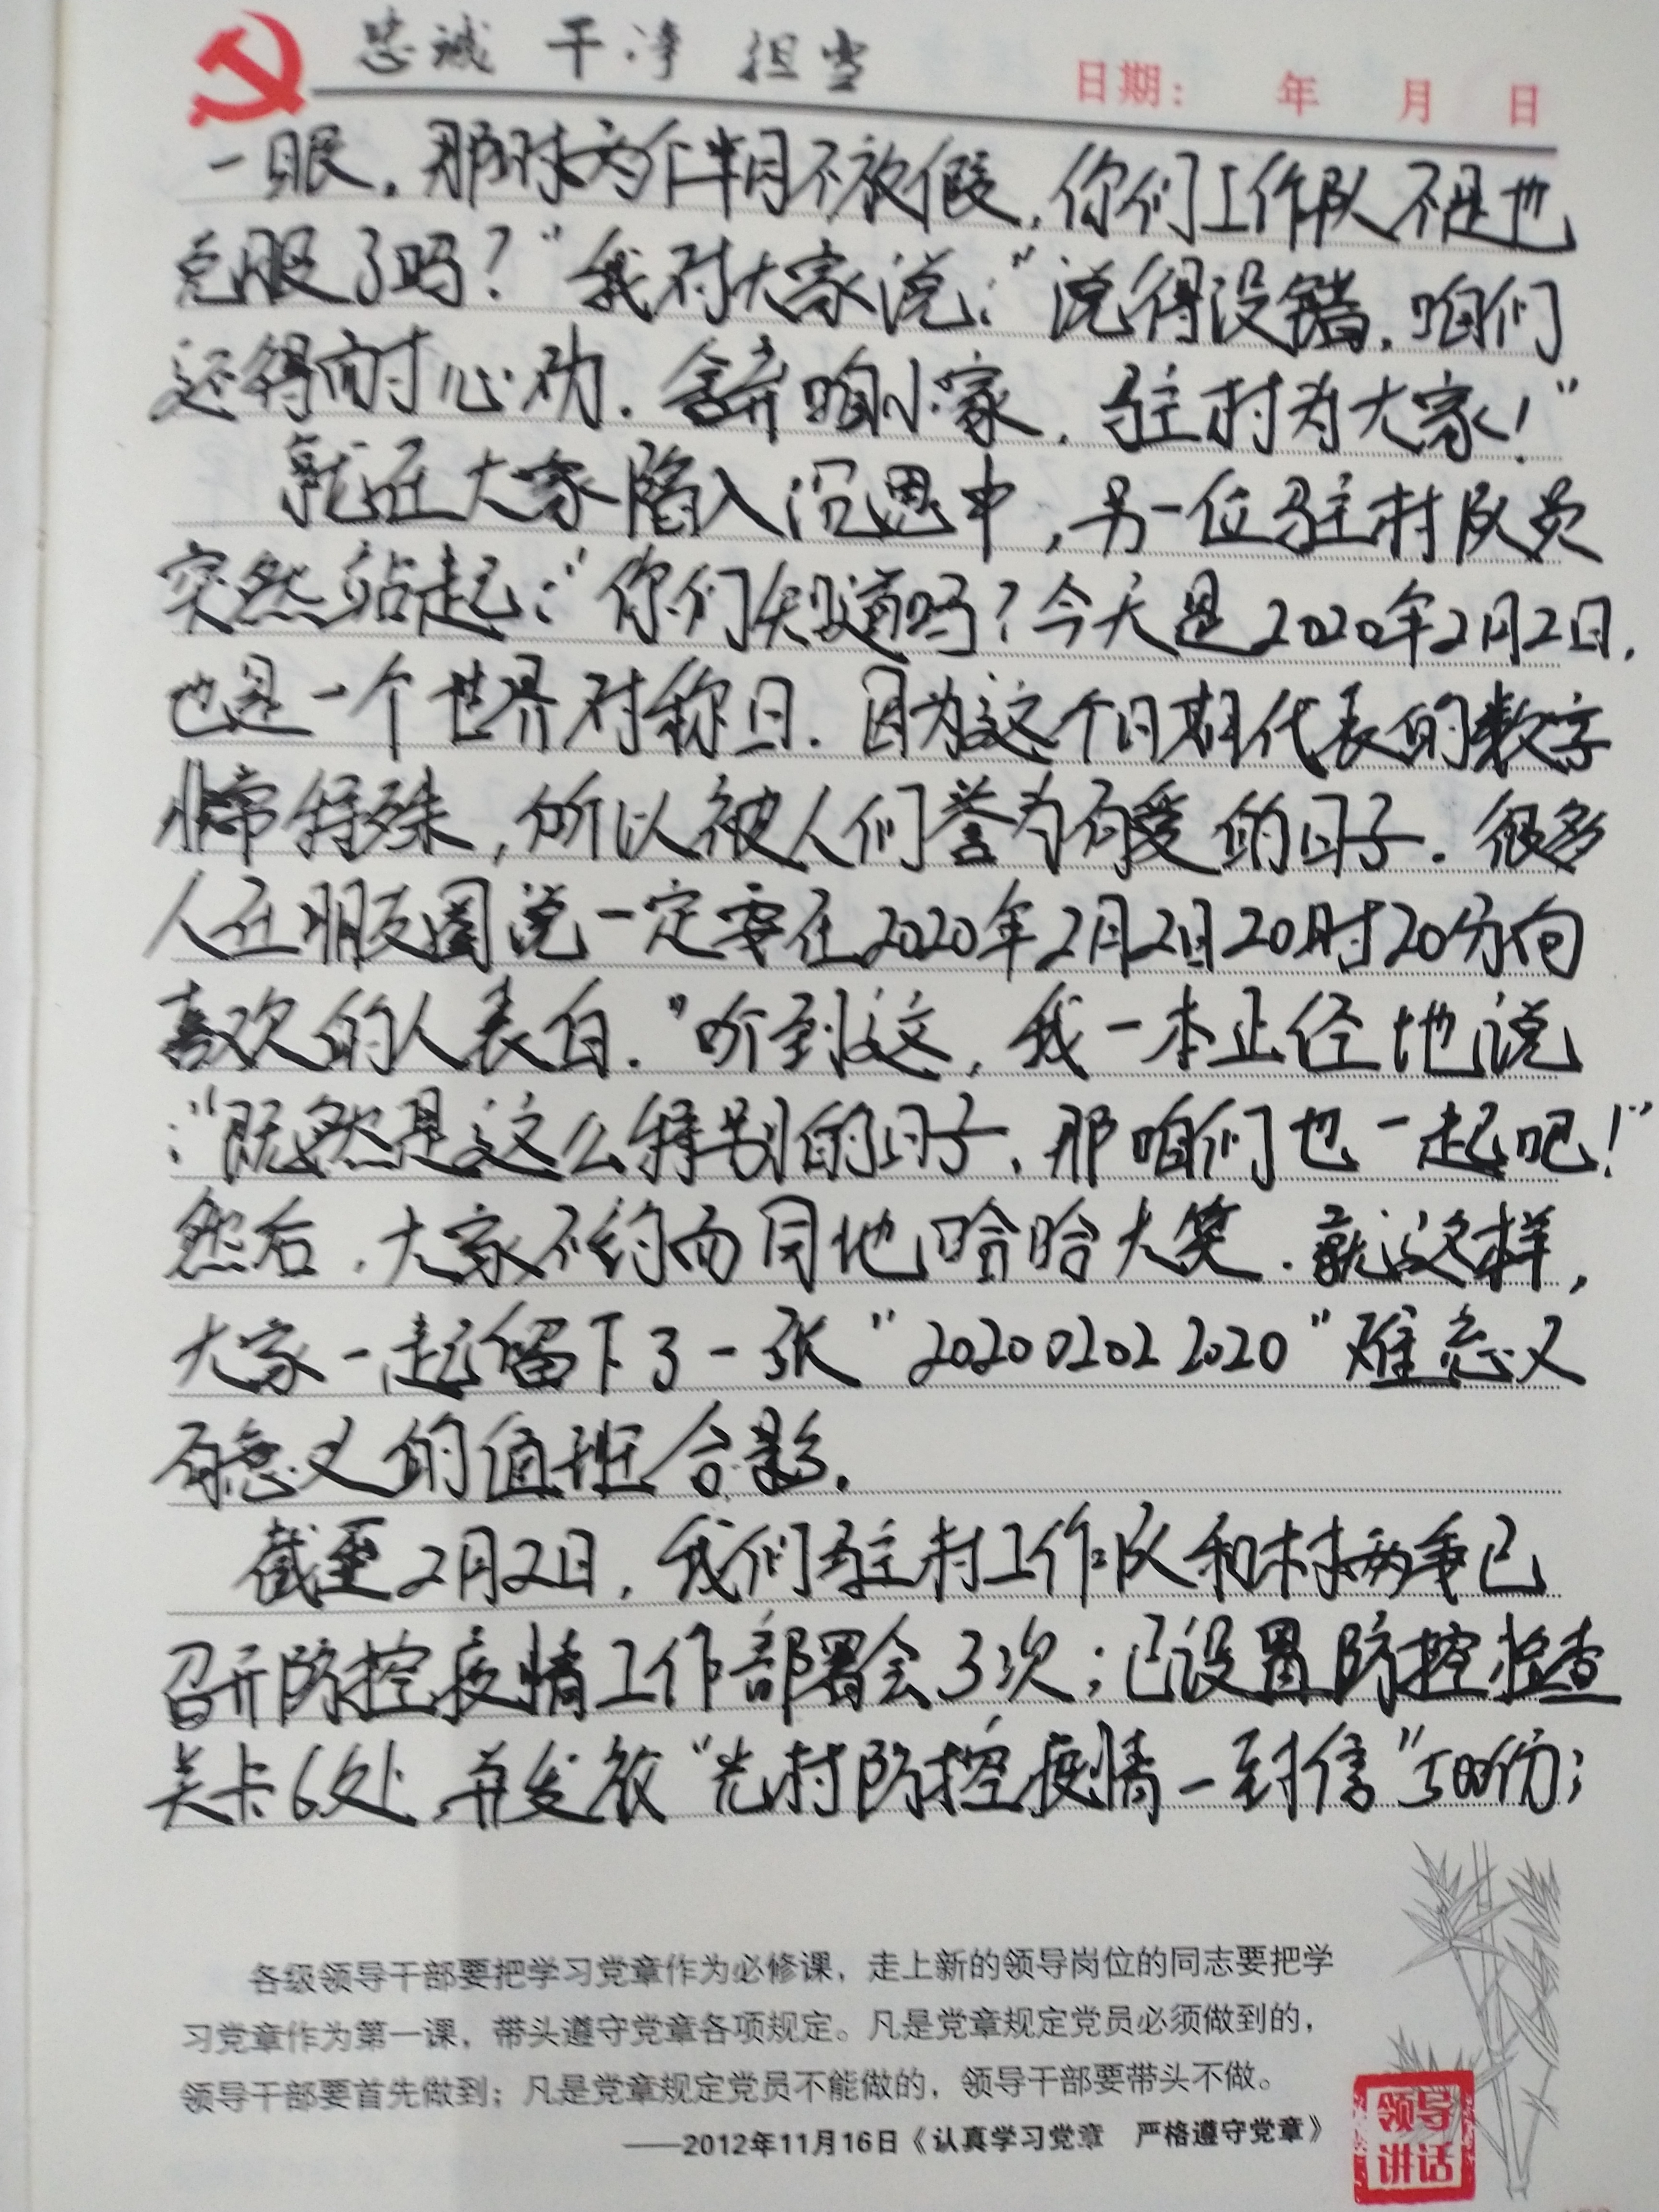 忠诚 干净 担当
日期： 年 月 日
一眼，那时为个半月不放假，你们工作队不是也
克服了吗？"我对大家说："说得没错，咱们
还得耐心劝，舍弃咱小家，驻村为大家！"
就在大家陷入沉思中，另一位驻村队员
突然站起："你们知道吗？今天是2020年2月2日，
也是一个世界对称日．因为这个日期代表的数字
非常特殊，所以被人们誉为有爱的日子．很多
人在朋友圈说一定要在2020年2月2日20时20分向
喜欢的人表白．"听到这，我一本正经地说
："既然是这么特别的日子，那咱们也一起吧！"
然后，大家不约而同地哈哈大笑．就这样，
大家一起留下了一张"20200202 2020"难忘又
有意义的值班合影．
截至2月2日，我们驻村工作队和村两委已
召开防控疫情工作部署会3次；已设置防控检查
关卡6处，并发放"光村防控疫情一封信"500份；
各级领导干部要把学习党章作为必修课，走上新的领导岗位的同志要把学
习党章作为第一课，带头遵守党章各项规定。凡是党章规定党员必须做到的，
领导干部要首先做到；凡是党章规定党员不能做的，领导干部要带头不做。
——2012年11月16日《认真学习党章 严格遵守党章》
领导
讲话